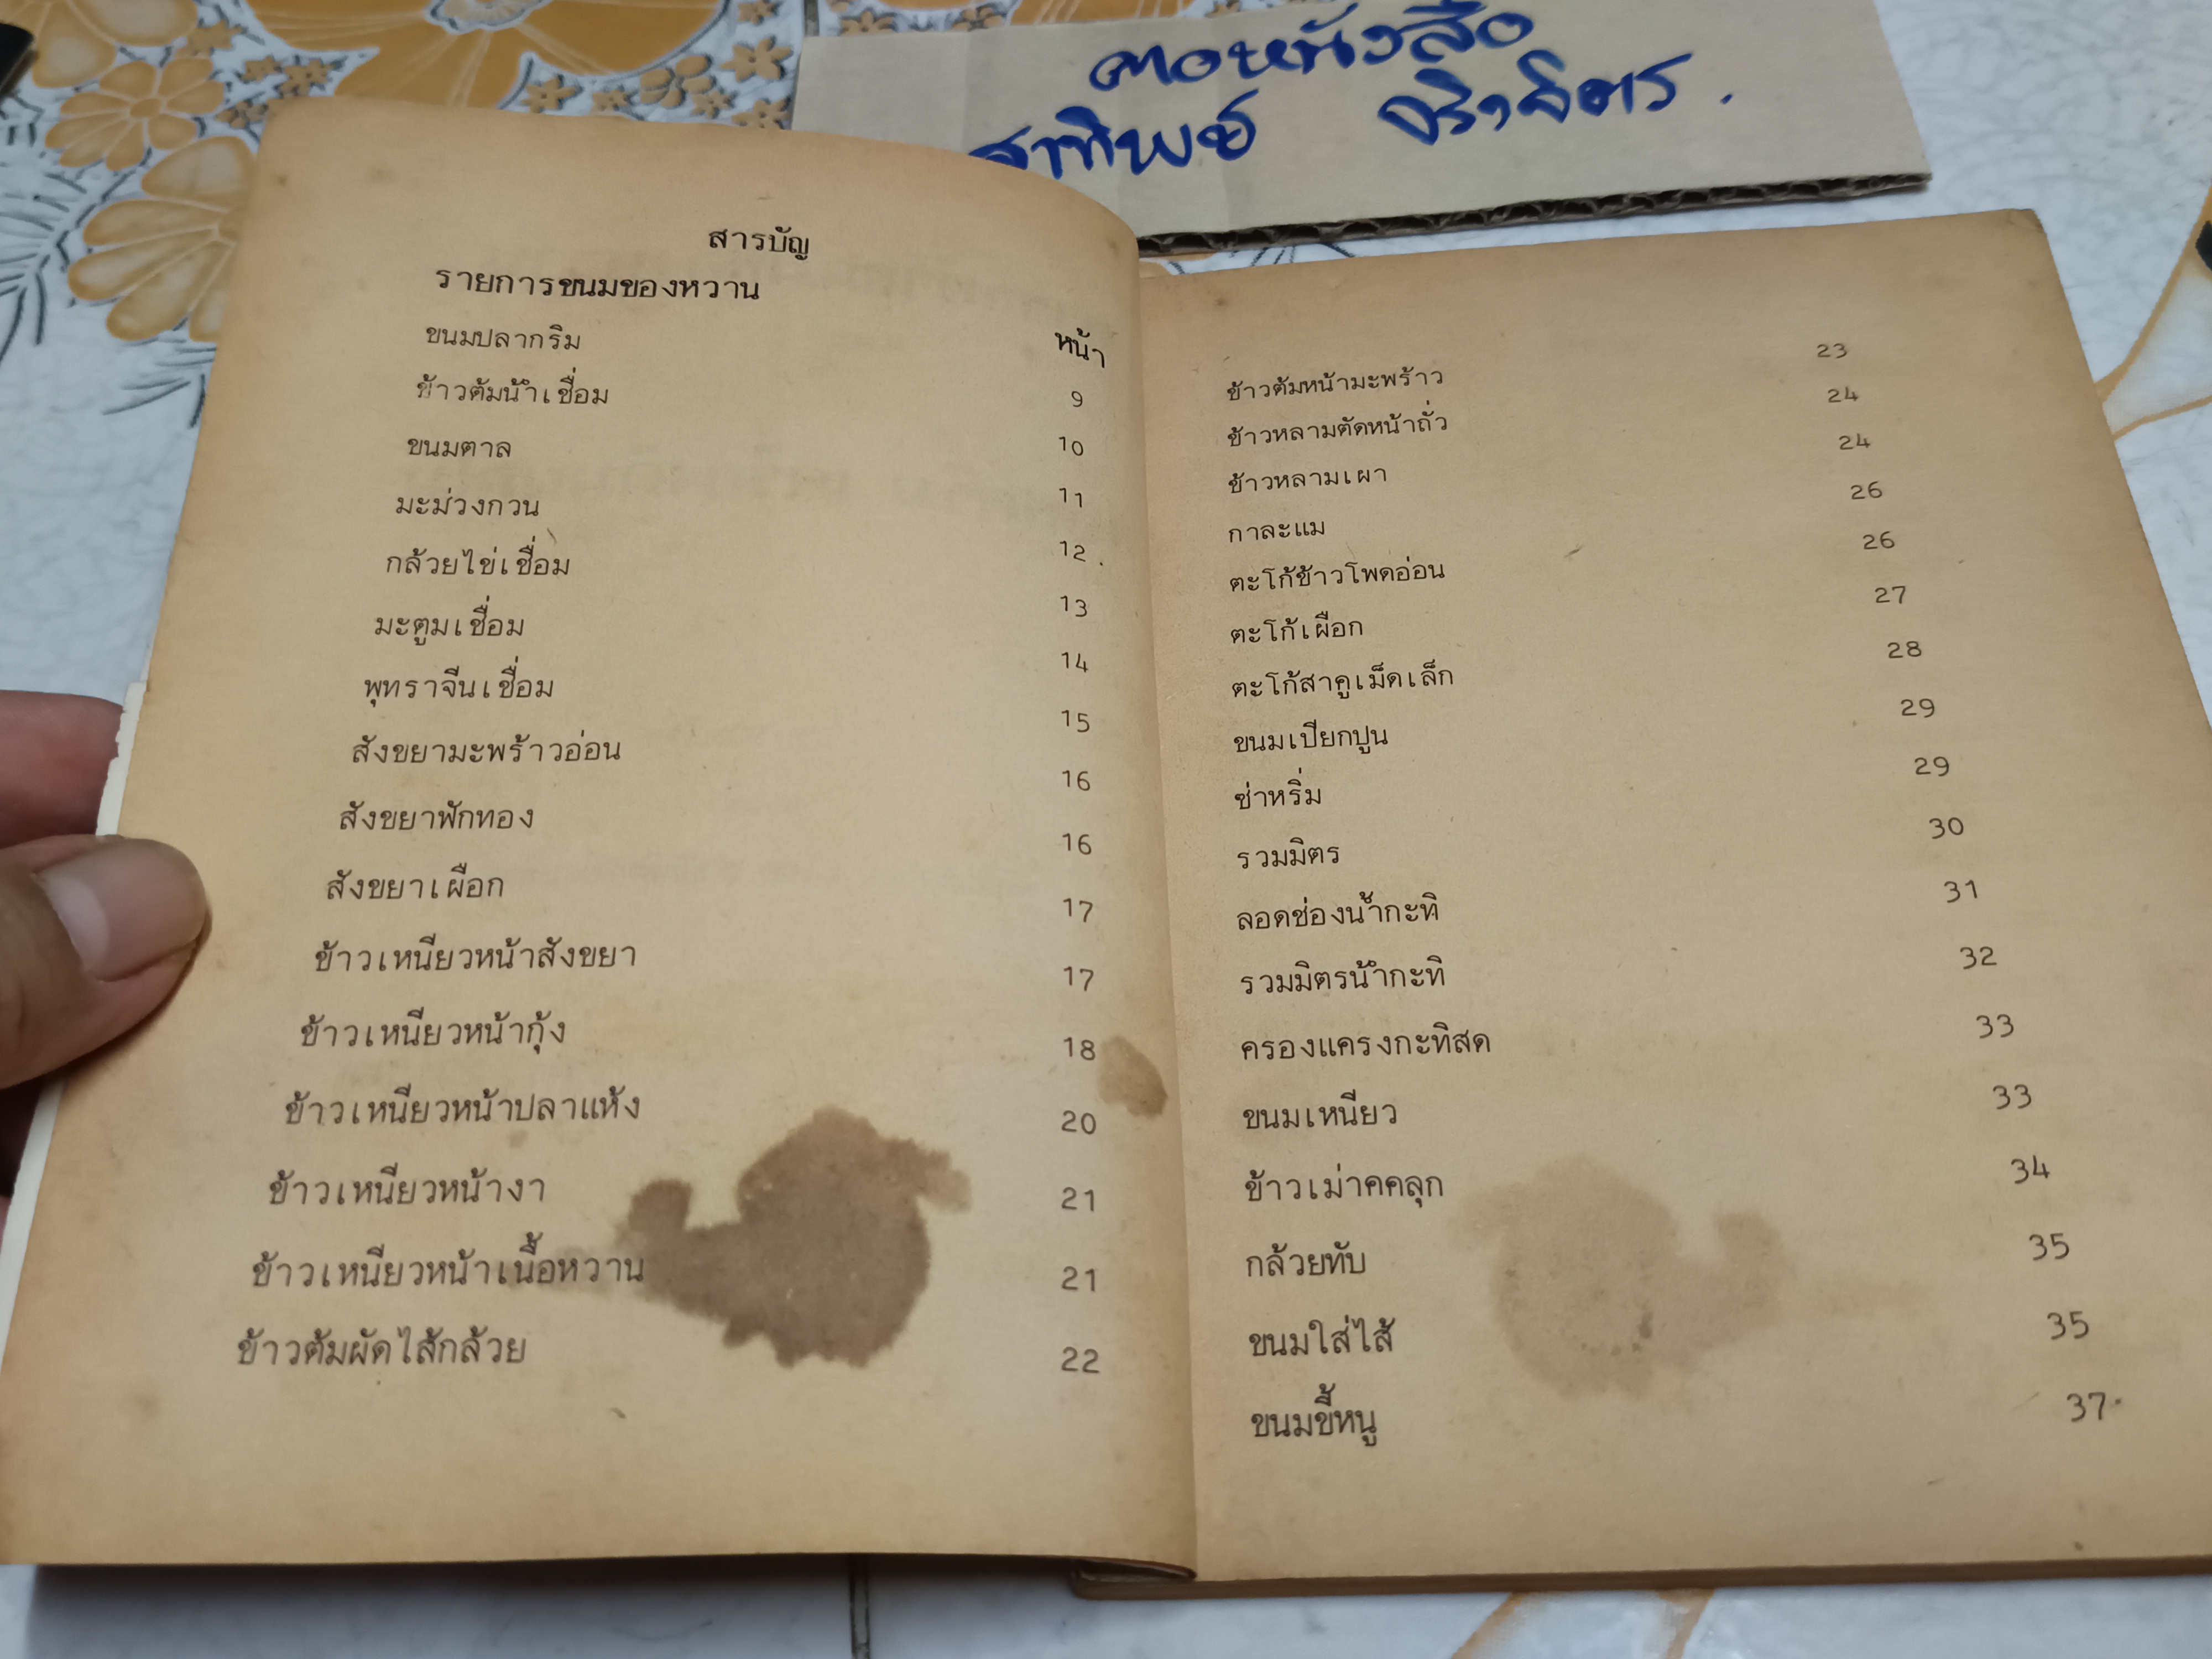 หนังสือ
สารบัญ
รายการขนมของหวาน
หน้า
ขนมปลากริม 9
ข้าวต้มน้ำเชื่อม 10
ขนมตาล 11
มะม่วงกวน 12
กล้วยไข่เชื่อม 13
มะตูมเชื่อม 14
พุทราจีนเชื่อม 15
สังขยามะพร้าวอ่อน 16
สังขยาฟักทอง 16
สังขยาเผือก 17
ข้าวเหนียวหน้าสังขยา 17
ข้าวเหนียวหน้ากุ้ง 18
ข้าวเหนียวหน้าปลาแห้ง 20
ข้าวเหนียวหน้างา 21
ข้าวเหนียวหน้าเนื้อหวาน 21
ข้าวต้มผัดไส้กล้วย 22
ข้าวต้มหน้ามะพร้าว 23
ข้าวหลามตัดหน้าถั่ว 24
ข้าวหลามเผา 24
กาละแม 26
ตะโก้ข้าวโพดอ่อน 26
ตะโก้เผือก 27
ตะโก้สาคูเม็ดเล็ก 28
ขนมเปียกปูน 29
ซ่าหริ่ม 29
รวมมิตร 30
ลอดช่องน้ำกะทิ 31
รวมมิตรน้ำกะทิ 32
ครองแครงกะทิสด 33
ขนมเหนียว 33
ข้าวเม่าคคลุก 34
กล้วยทับ 35
ขนมใส่ไส้ 35
ขนมขี้หนู 37